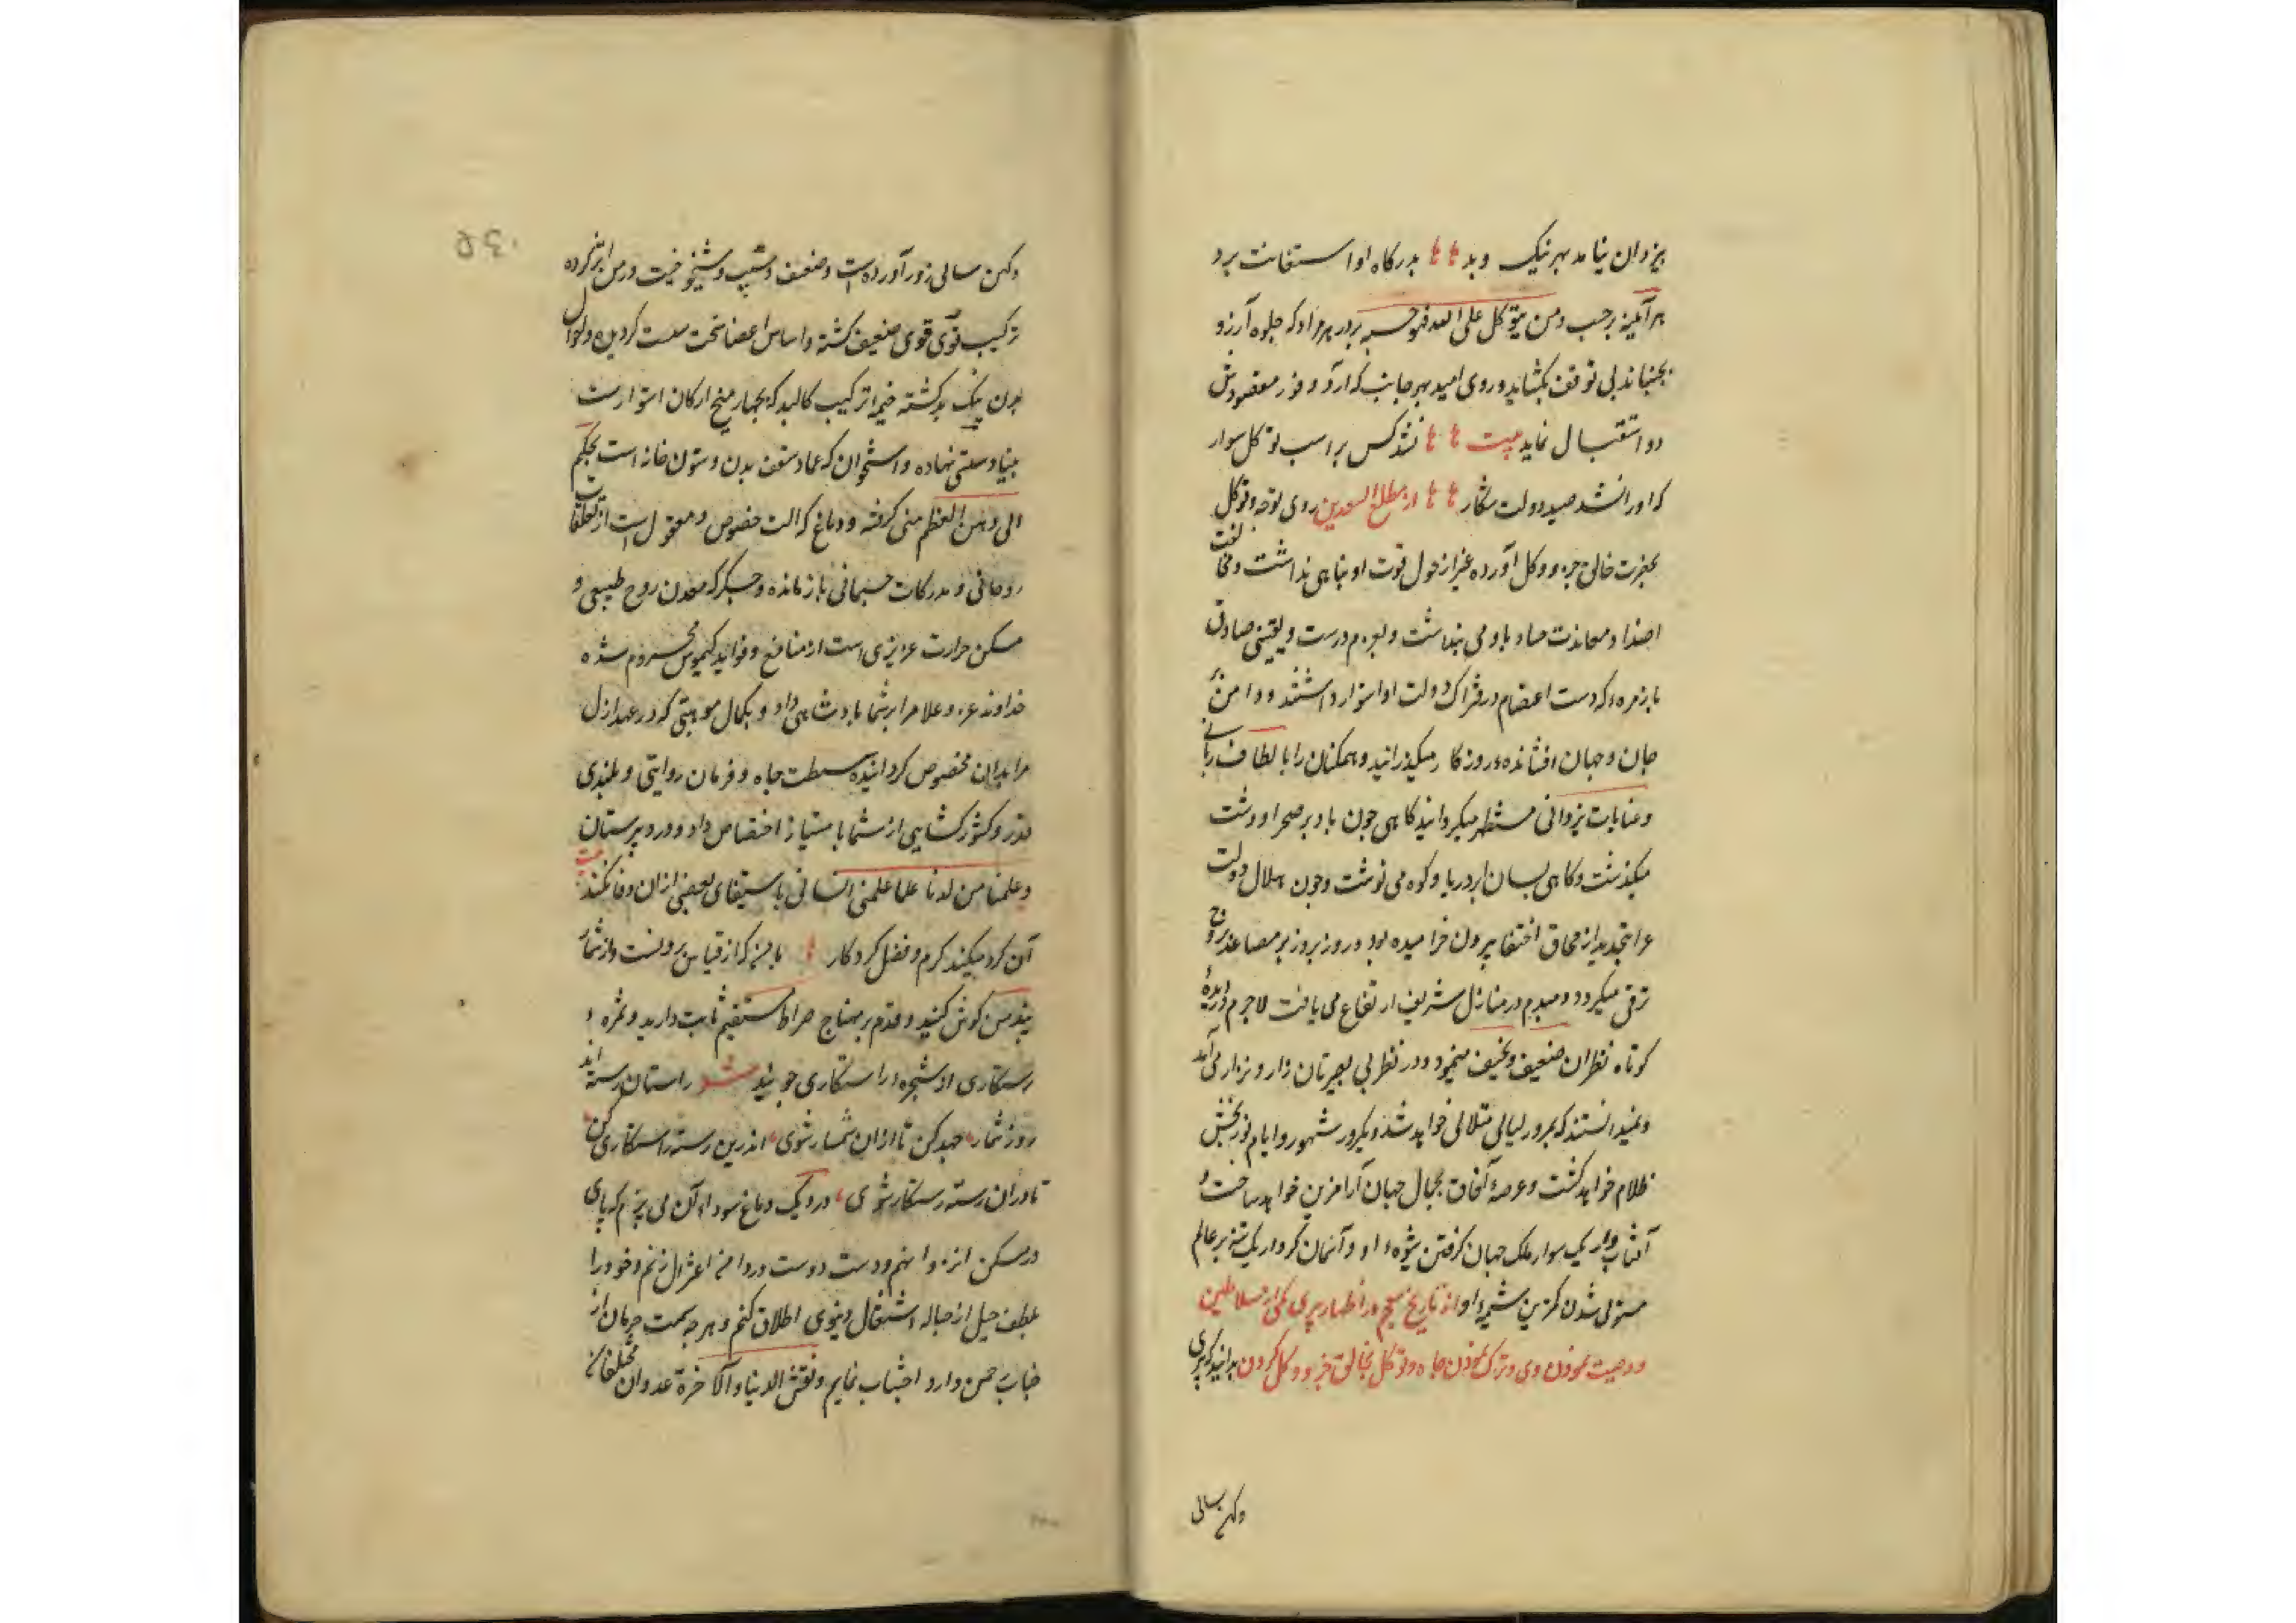 یزدان نیامد بهر نیک و بد بدرکاه او استغاثت برد
هر آینه برحسب ومن یتوکل علی الله فهو حسبه بر در هر مراد که جلوه آرزو
بجنباند بی توقف بکشاید و روی امید بهر جانب که آرد و فوز مقصودش
دو استقبال نماید بیت نشد کس بر اسب توکل سوار
که او را نشد صید دولت شکار از مطلع السعدین روی توجه و توکل
بحضرت خالق جزء و کل آورده غیر از حول قوت او پناهی نداشت و مخالفت
اضداد و معاندت حساد باد می پنداشت و بعزم درست و یقینی صادق
با زمره که دست اعتصام در فتراک دولت او استوار داشتند و دامن
جان و جهان افشانده روزکار میکذرانید و همکنان را با لطاف ربانی
و عنایات یزدانی مستظهر میکردانید کاهی چون باد بر صحرا و دشت
میکذشت و کاهی بسان ابر دریا و کوه می نوشت و چون هلال دولت
غرا بتجدید از محاق اختفا بیرون خرامیده بود و روز بروز بر مصاعد بروج
ترقی میکرد و دمبدم در منازل شریف ارتفاع می یافت لاجرم در دیده
کوتاه نظران ضعیف و نحیف مینمود و در نظر بی بصیرتان زار و نزار می آمد
و نمیدانستند که بمرور لیالی متلالی خواهد شد و بکرور شهور و ایام نور بخش
ظلام خواهد کشت و عرصهٔ آفاق بجمال جهان آرا مزین خواهد ساخت و
آفتاب وار یک سوار ملک جهان کرفتن شیوه او و آسمان کردار یک تنه بر عالم
مستولی شدن کمترین شیمهٔ او از تاریخ معجم در اظهار پیری یکی از سلاطین
و وصیت نمودن وی و ترک نمودن جاه و توکل بخالق جزو و کل کردن بدانید که پیری
وکهن سالی
وکهن سالی زور آورده است و ضعف و شیب و شیخوخیت در من اثر کرده
ترکیب قوی قوی ضعیف کشته و اساس اعضا سخت سست کردیده و احوال
بدن نیک بد کشته خیمه ترکیب کالبد که بچهار میخ ارکان استوارست
بنیاد سستی نهاده و استخوان که عماد سقف بدن و ستون خانه است بحکم
انی وهن العظم منی کرفته و دماغ که الت خصوص و معقول است از تعلقات
روحانی و مدرکات جسمانی باز مانده و جکر که معدن روح طبیعی و
مسکن حرارت عزیزی است از منافع و فواید کیموس محروم شده
خداوند عز و علا مرا بر شما پادشاهی داد و بکمال موهبتی که در عهد ازل
مرا بدان مخصوص کردانیده بسطت جاه و فرمان روایی و بلندی
قدر و کشور کشایی از شما بامتیاز اختصاص داد و در دبیرستان
و علمنا من لدنا علما علمی انسانی باستیفای بعضی از ان وفا نکند بیت
آن کرد میکند کرم و فضل کردکار با من که از قیاس برونست و از شمار
پند من کوش کنید و قدم بر منهاج صراط مستقیم ثابت دارید و ثمره و
رستکاری از شجره راستکاری جویید راستان رسته اند
روز شمار جهد کن تا از ان شمار شوی اندرین رسته راستکاری کن
تا دران رسته رستکار شوی در دیک دماغ سودا آن می پزم که پای
در مسکن انزوا نهم و دست دوست در دامن اعتزال زنم و خود را
بلطف حیل از حباله اشتغال دنیوی اطلاق کنم و هر چه سمت حرمان از
جناب رحمن دارد اجتناب نمایم و نقش الدنیا والآخرة عدوان مختلفان